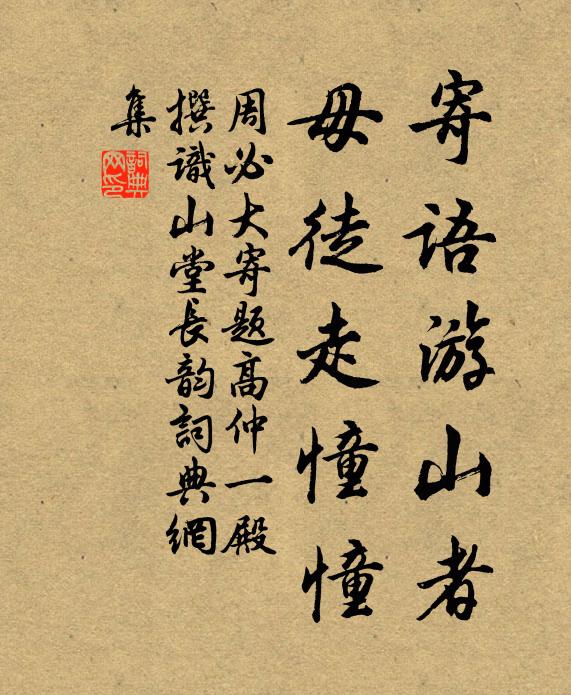 寄语游山者
毋徒走憧憧
周必大寄题高仲一殿
撰識山堂長韵詞典網
集
詞典
网印